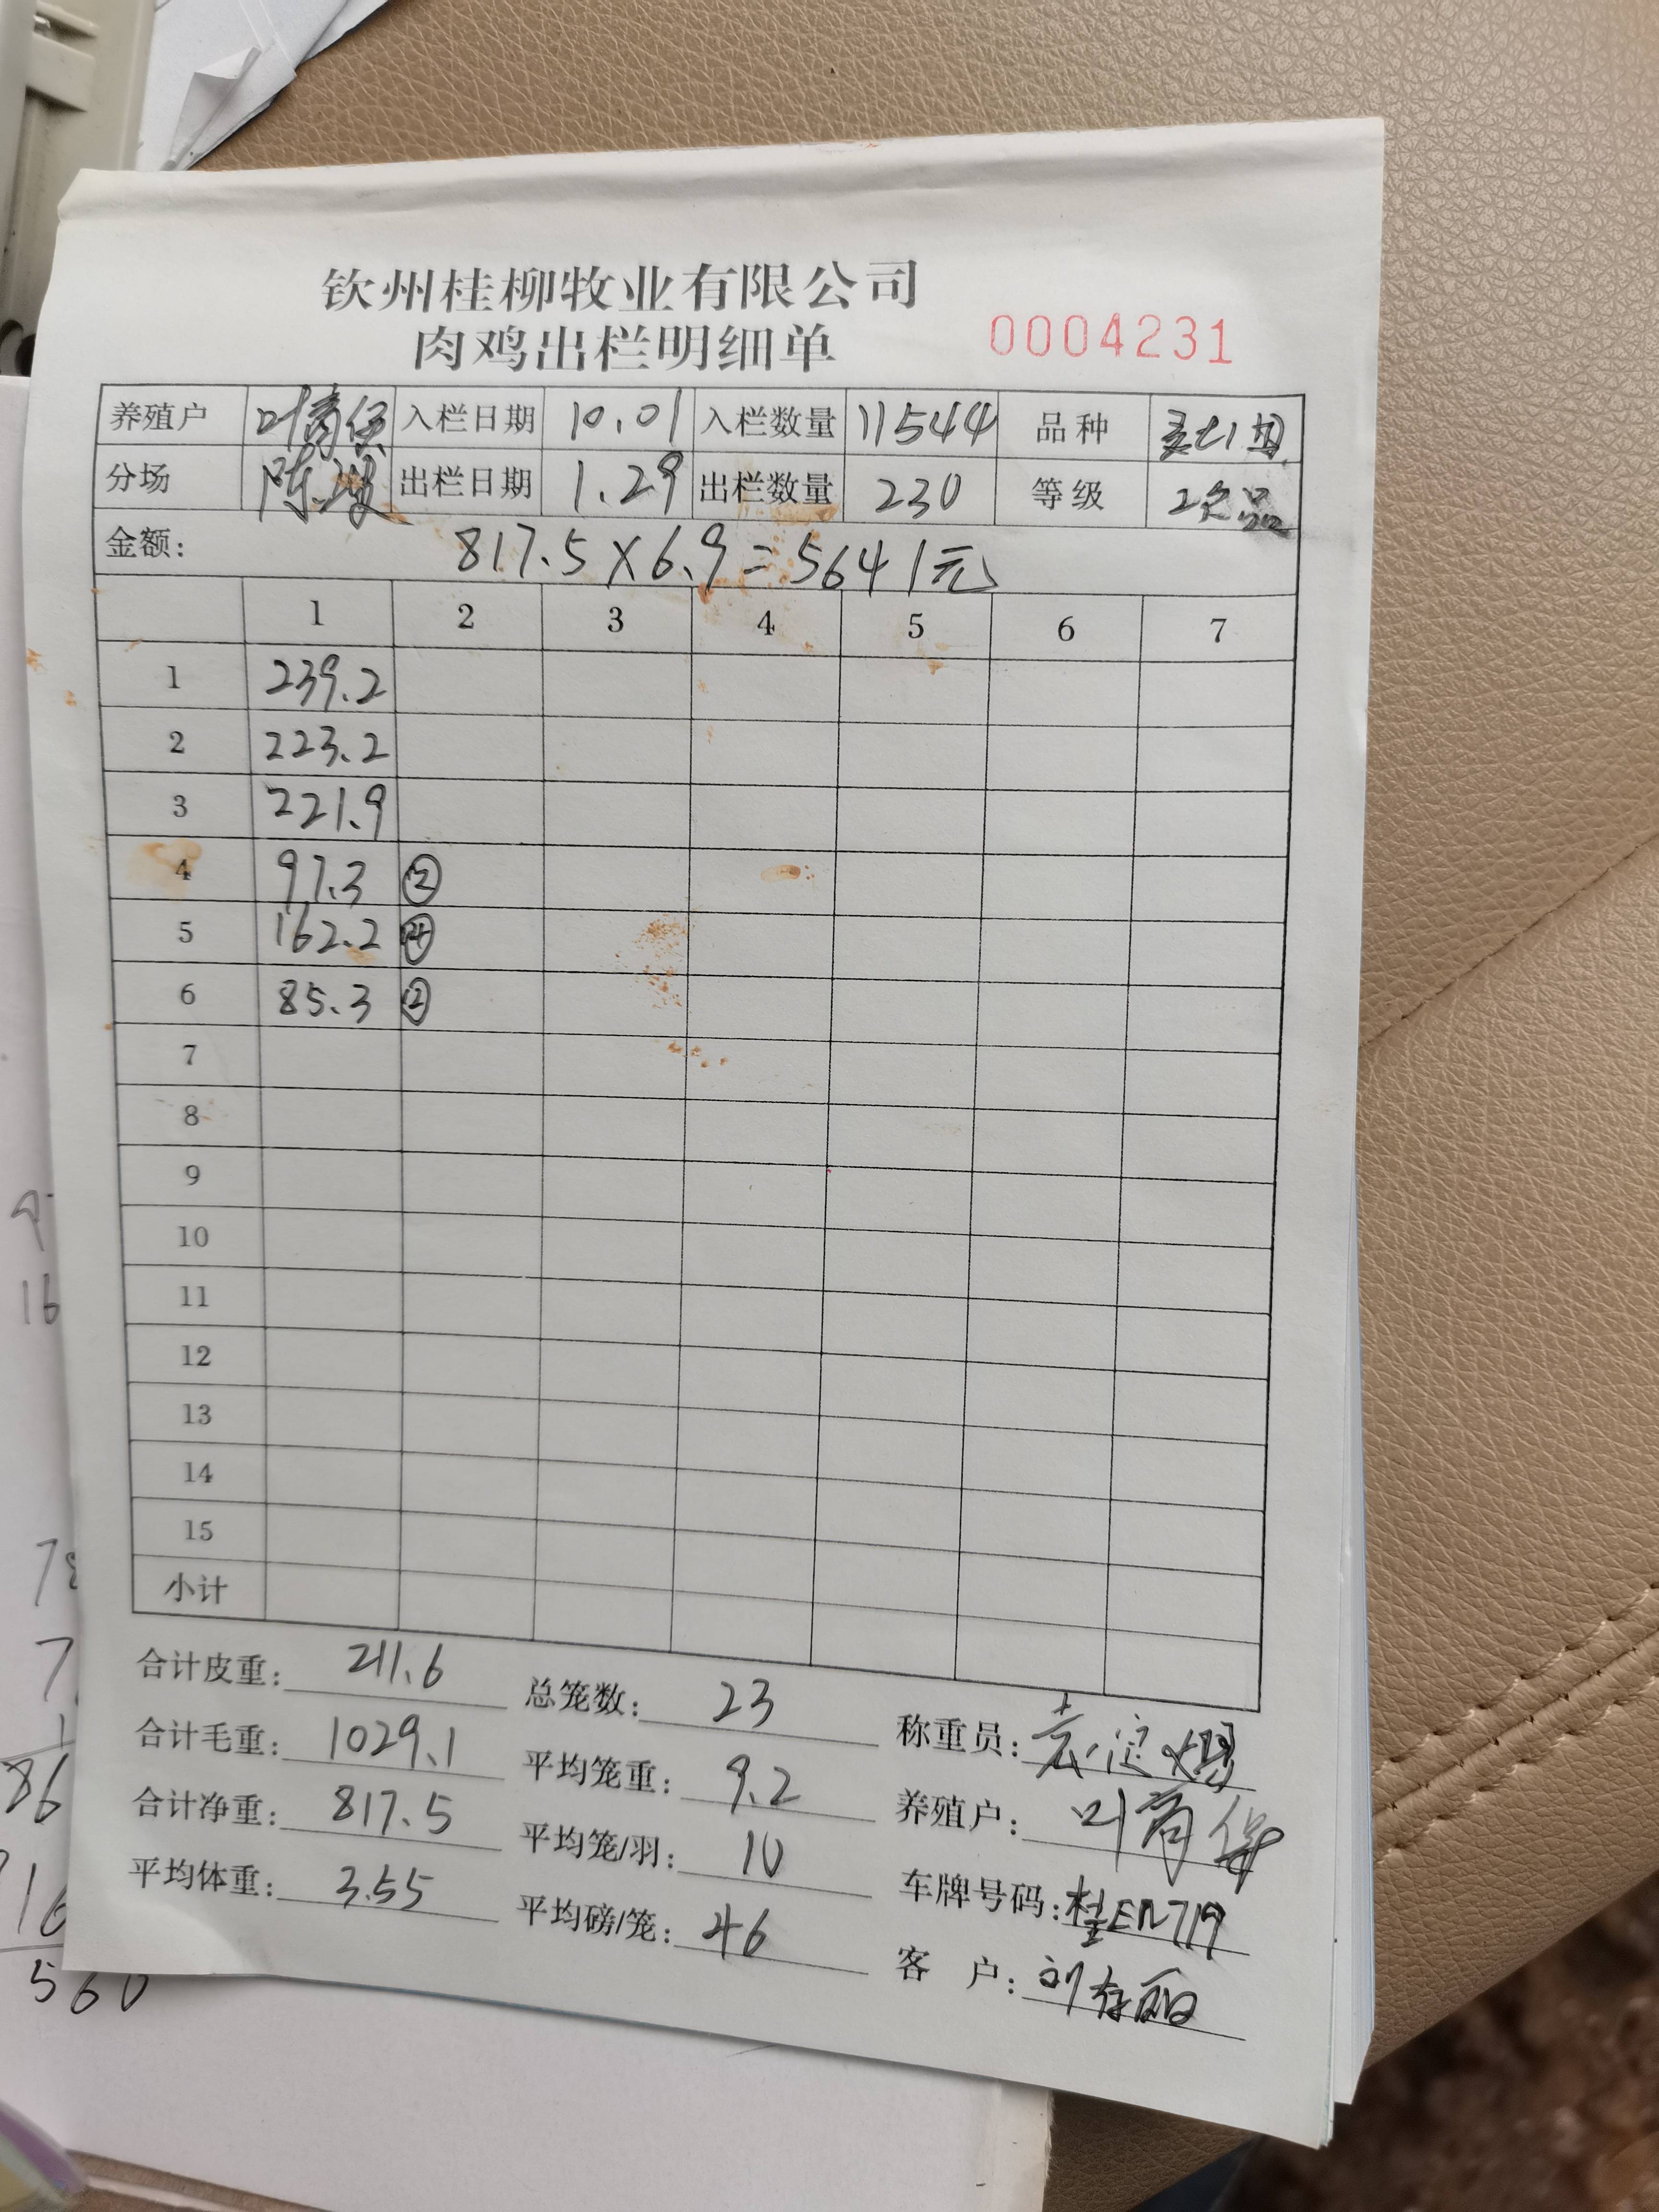 钦州桂柳牧业有限公司
肉鸡出栏明细单 0004231
养殖户 入栏日期 10.01 入栏数量 11544 品种
分场 出栏日期 1.29 出栏数量 230 等级 次品
金额: 817.5×6.9=5641元
1 2 3 4 5 6 7
1 239.2
2 223.2
3 221.9
4 97.3 ②
5 162.2 ④
6 85.3 ②
7
8
9
10
11
12
13
14
15
小计
合计皮重: 211.6 总笼数: 23 称重员:
合计毛重: 1029.1 平均笼重: 9.2 养殖户:
合计净重: 817.5 平均笼/羽: 10 车牌号码:
平均体重: 3.55 平均磅/笼: 46 客 户:
16
86
16
560